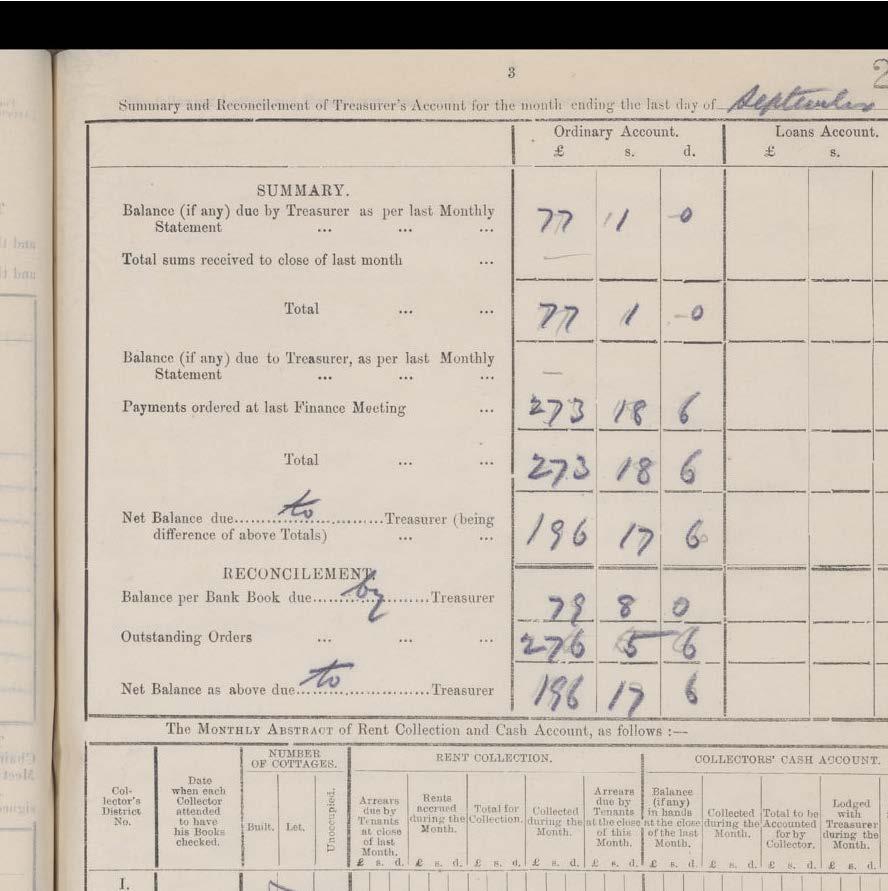 3
Summary and Reconcilement of Treasurer's Account for the month ending the last day of September
Ordinary Account. Loans Account.
£ s. d. £ s.
SUMMARY.
Balance (if any) due by Treasurer as per last Monthly
Statement ... ... ... 77 11 0
Total sums received to close of last month ... —
Total ... ... 77 1 -0
Balance (if any) due to Treasurer, as per last Monthly
Statement ... ... ... —
Payments ordered at last Finance Meeting ... 273 18 6
Total ... ... 273 18 6
Net Balance due...to...Treasurer (being
difference of above Totals) ... ... 196 17 6
RECONCILEMENT.
Balance per Bank Book due...by...Treasurer 79 8 0
Outstanding Orders ... ... ... 276 5 6
Net Balance as above due...to...Treasurer 196 17 6
The MONTHLY ABSTRACT of Rent Collection and Cash Account, as follows :—
NUMBER OF COTTAGES. RENT COLLECTION. COLLECTORS' CASH ACCOUNT.
Collector's District No.
Date when each Collector attended to have his Books checked.
Built. Let. Unoccupied.
Arrears due by Tenants at close of last Month.
Rents accrued during the Month.
Total for Collection.
Collected during the Month.
Arrears due by Tenants at the close of this Month.
Balance (if any) in hands at the close of the last Month.
Collected during the Month.
Total to be Accounted for by Collector.
Lodged with Treasurer during the Month.
£ s. d. £ s. d. £ s. d. £ s. d. £ s. d. £ s. d. £ s. d. £ s. d. £ s. d.
I.